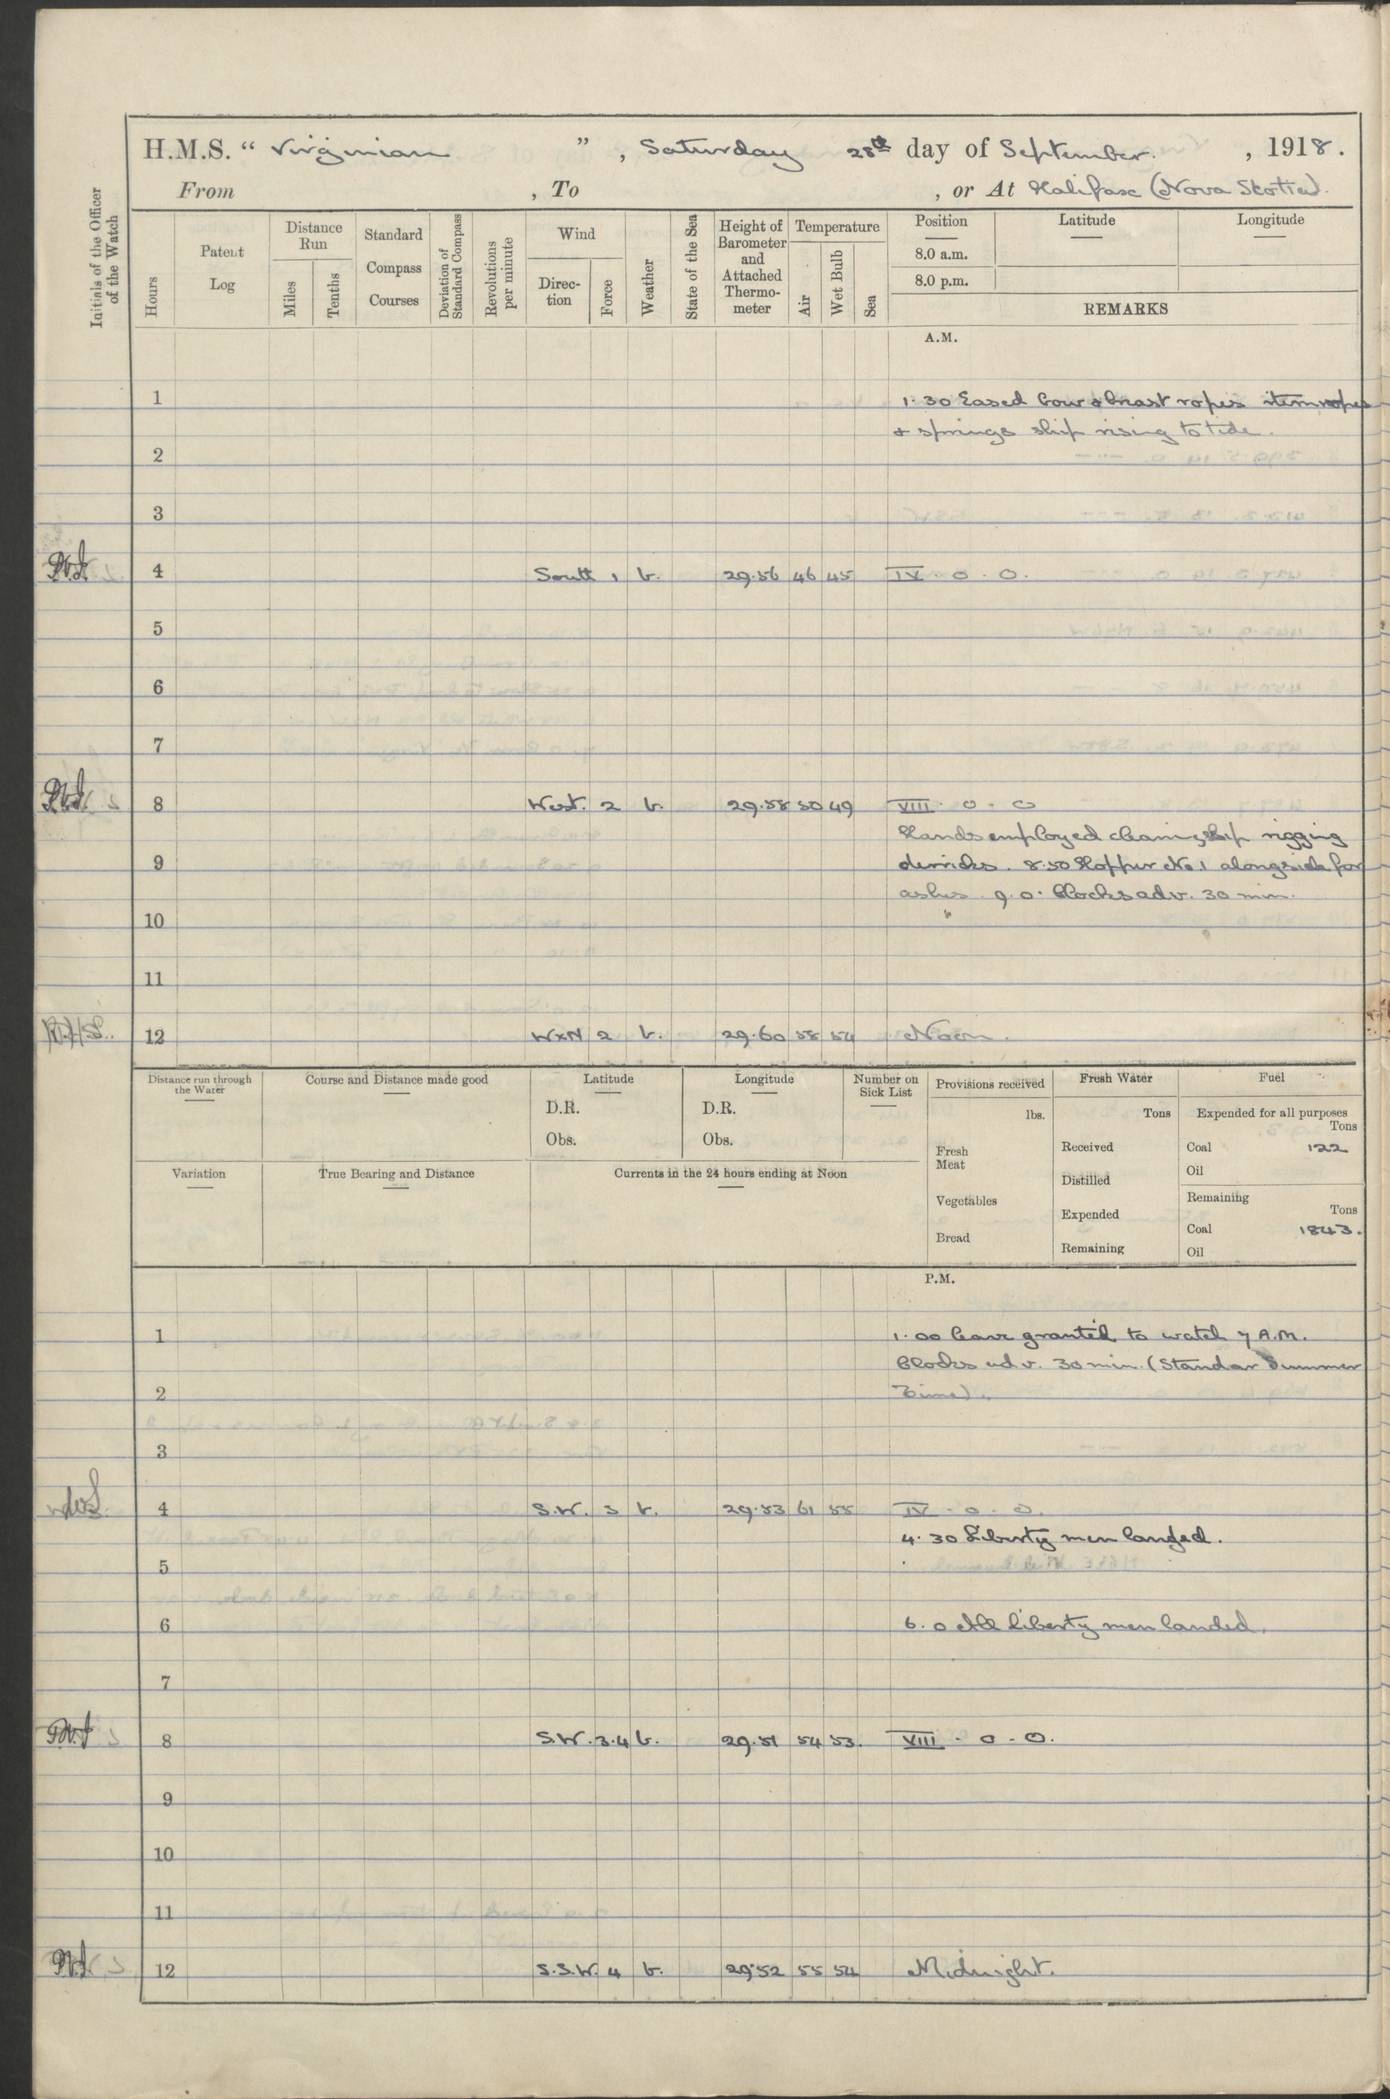 H.M.S. “ Virginian ” , Saturday 28th day of September. , 1918.
From , To , or At Halifax (Nova Scotia).
Initials of the Officer of the Watch
Hours
Patent Log
Distance Run
Miles
Tenths
Standard Compass Courses
Deviation of Standard Compass
Revolutions per minute
Wind
Direction
Force
Weather
State of the Sea
Height of Barometer and Attached Thermometer
Temperature
Air
Wet Bulb
Sea
Position Latitude Longitude
8.0 a.m.
8.0 p.m.
REMARKS
A.M.
1 1.30 Eased bow & breast ropes stern ropes
& springs ship rising to tide.
2
3
4 South 1 b. 29.56 46 45 IV . 0 . 0.
5
6
7
8 West. 2 b. 29.58 50 49 VIII . 0 . 0
Hands employed cleaning ship rigging
9 derricks. 8.50 Hopper No.1 alongside for
ashes 9.0. Clocks adv. 30 min.
10
11
12 WxN 2 b. 29.60 58 54 Noon.
Distance run through the Water
Course and Distance made good
Latitude
D.R.
Obs.
Longitude
D.R.
Obs.
Number on Sick List
Provisions received
lbs.
Fresh Meat
Vegetables
Bread
Fresh Water
Tons
Received
Distilled
Expended
Remaining
Fuel
Expended for all purposes
Tons
Coal 122
Oil
Remaining
Tons
Coal 1843.
Oil
Variation
True Bearing and Distance
Currents in the 24 hours ending at Noon
P.M.
1 1.00 leave granted to watch 7 A.M.
Clocks adv. 30 min. (Standar Summer
2 Time).
3
4 S.W. 3 b. 29.53 61 55 IV . 0 . 0.
4.30 Liberty men landed.
5
6 6.0 All liberty men landed.
7
8 S.W. 3.4 b. 29.51 54 53. VIII . 0 . 0.
9
10
11
12 S.S.W. 4 b. 29.52 55 54 Midnight.